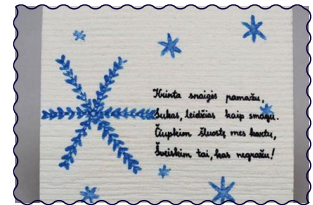 Krinta snaigės pamažu,
Sukas, leidžias kaip smagu.
Čiupkim šluostę mes kartu,
Šveiskim tai, kas negražu!